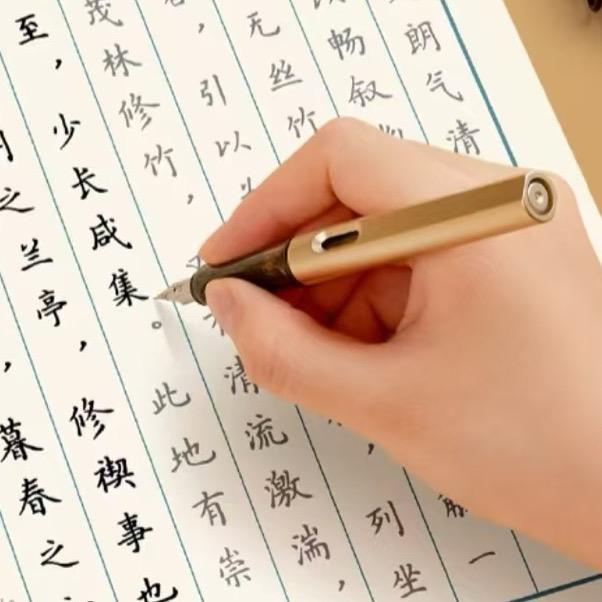 ，暮春之
之兰亭，修禊事也
至，少长咸集。此地有崇
茂林修竹，清流激湍，
，引以，列坐
无丝竹一
畅叙
朗气清